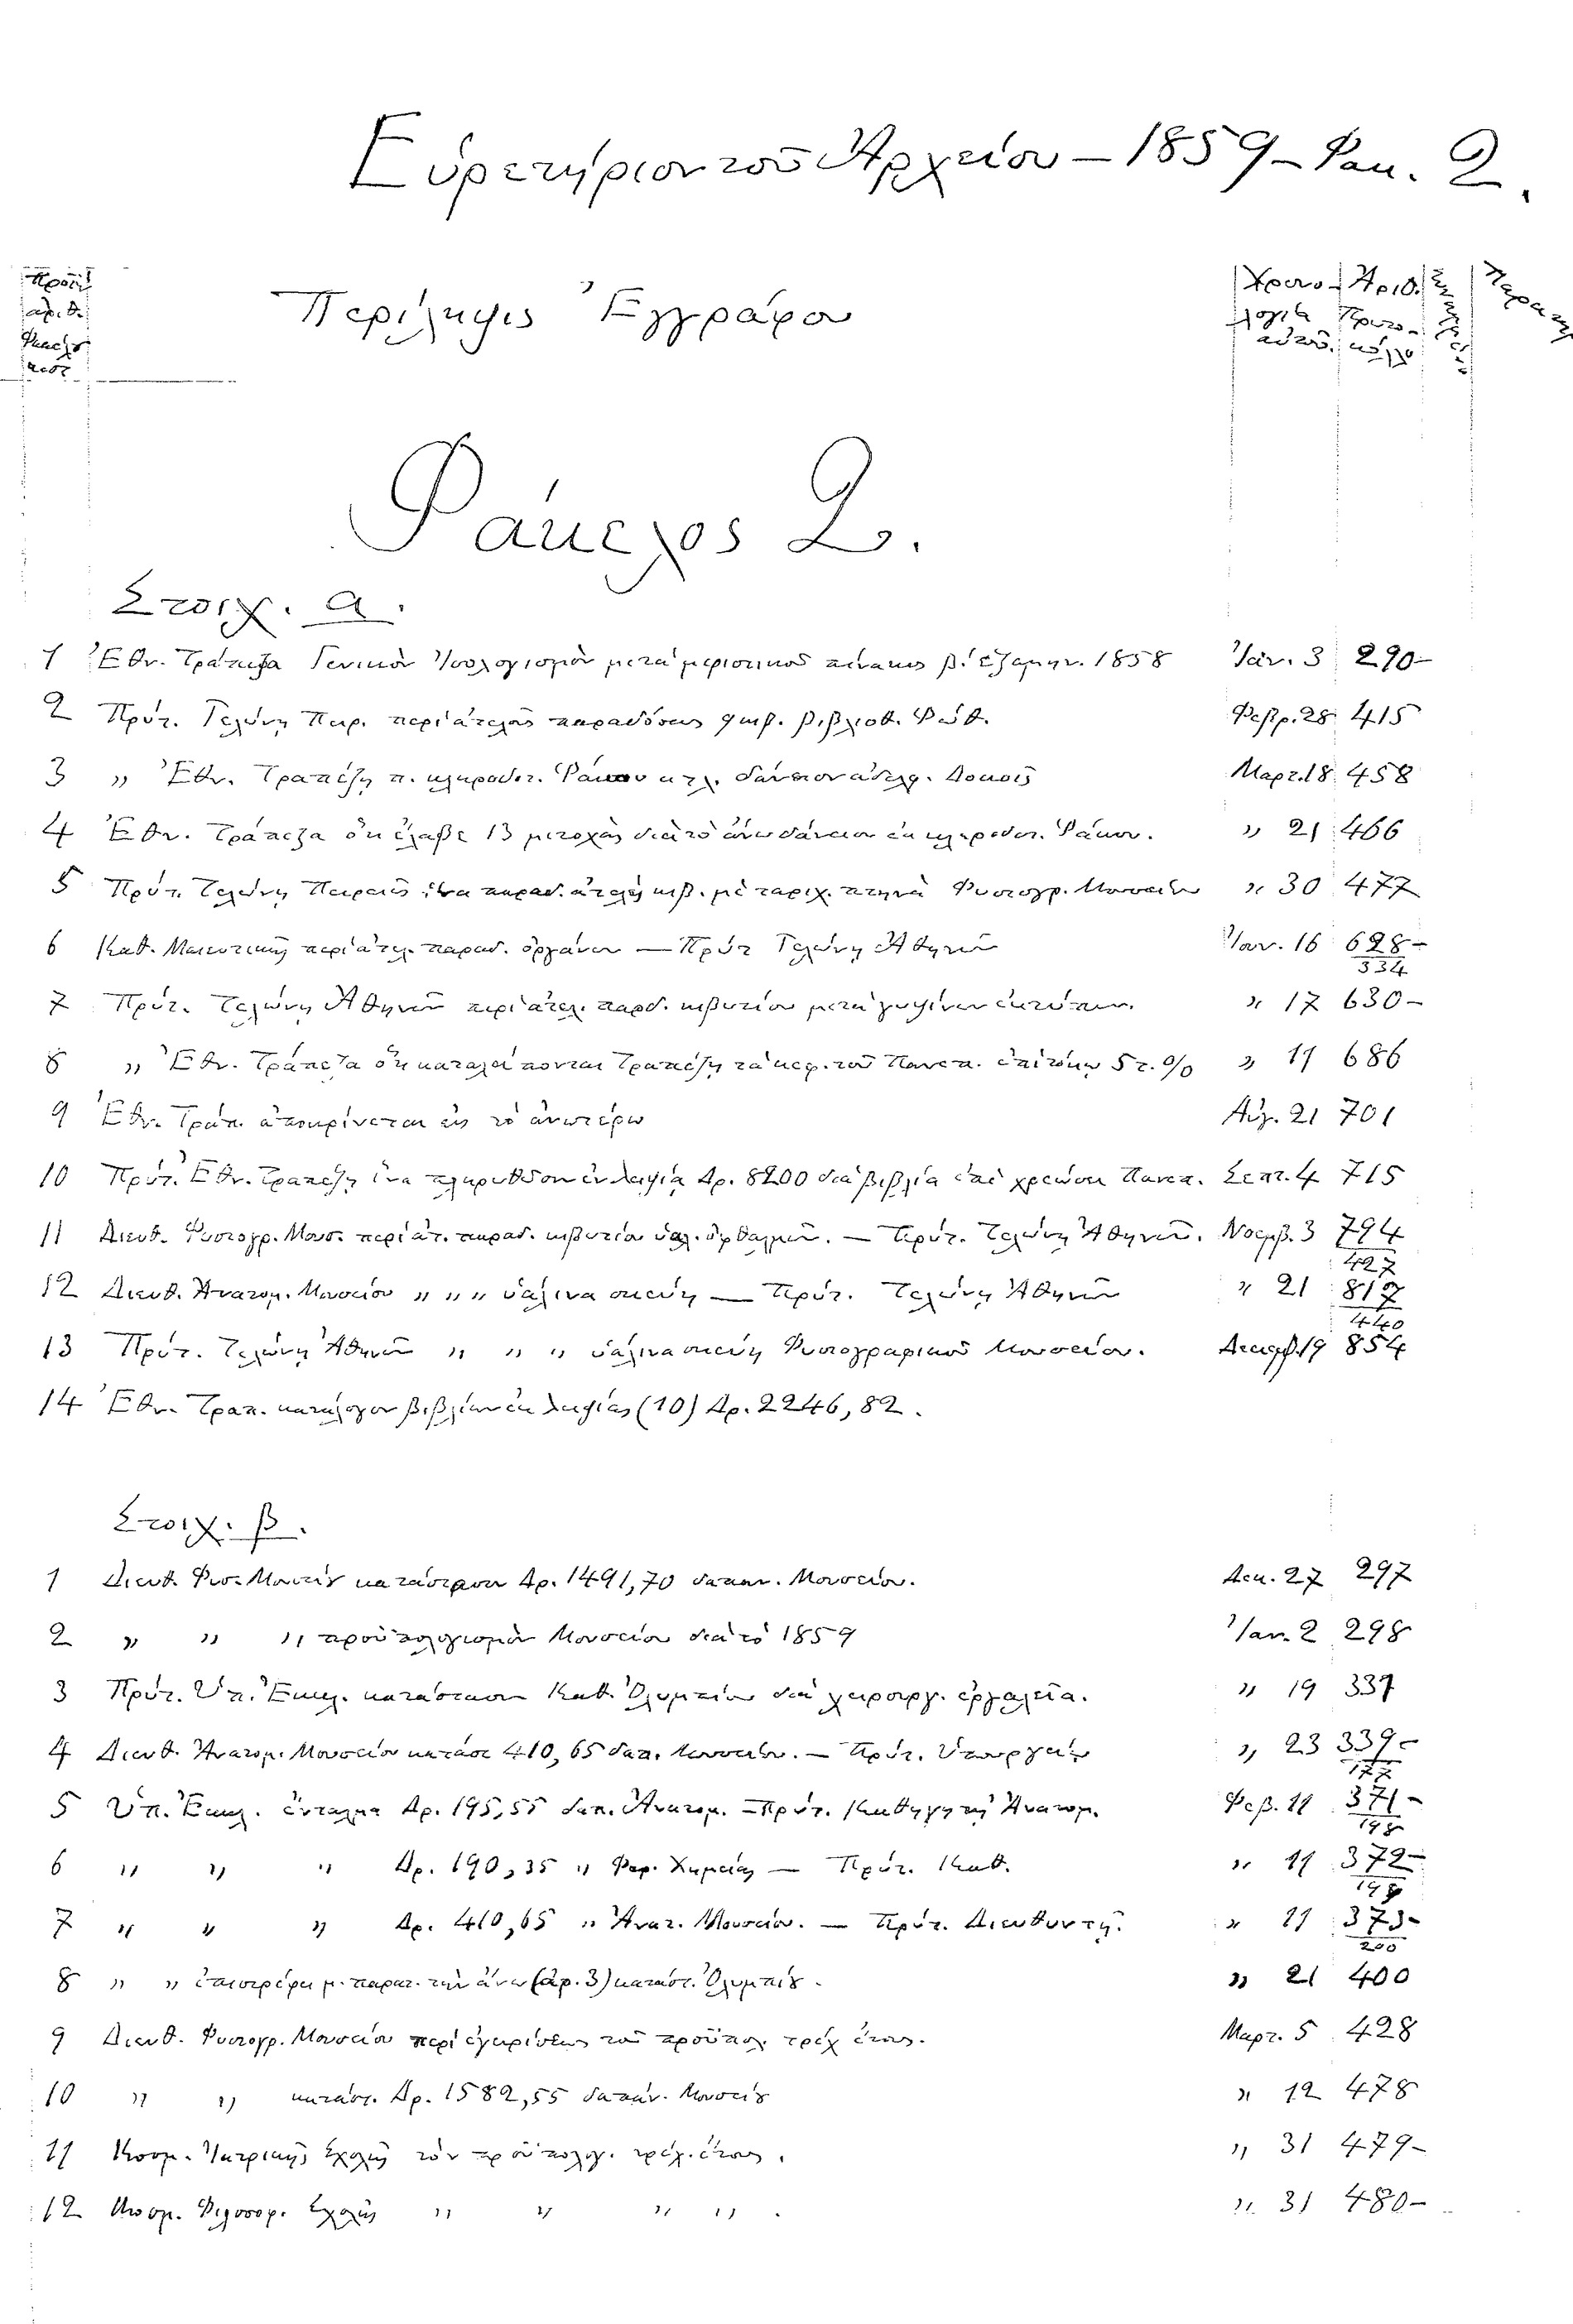 Εὑρετήριον τοῦ Ἀρχείου – 1859 – Φακ. 2.
Περίληψις Ἐγγράφου
Χρονο- Ἀριθ.
λογία Πρωτο-
αὐτοῦ. κόλλου
Φάκελος 2.
Στοιχ. α.
1 Ἐθν. Τράπεζα Γενικὸν Ὑπολογισμὸν μετὰ μεριστικοῦ πίνακος β.' ἑξαμην. 1858 Ἰάν. 3 290–
2 Πρύτ. Τελώνῃ Πειρ. περὶ ἀτελοῦς παραδόσεως κιβ. βιβλιοθ. Φεβρ. 28 415
3 " Ἐθν. Τραπέζῃ π. κληροδοτ. Ῥάκου κτλ. δάνειον ἀδελφ. Δοκοῦ Μαρτ. 18 458
4 Ἐθν. Τράπεζα ὅτι ἔλαβε 13 μετοχὰς διὰ τὸ ἄνω δάνειον ἐκ κληροδοτ. Ῥάκου. " 21 466
5 Πρύτ. Τελώνῃ Πειραιῶς ἵνα παραδ. ἀτελῆ κιβ. μὲ ταριχ. πτηνὰ Φυσιογρ. Μουσείου " 30 477
6 Καθ. Μαιευτικῆς περὶ ἀτελ. παραδ. ὀργάνων – Πρύτ Τελώνῃ Ἀθηνῶν Ἰαν. 16 628–
334
7 Πρύτ. Τελώνῃ Ἀθηνῶν περὶ ἀτελ. παραδ. κιβωτίου μετὰ γυψίνων ἐκτύπων. " 17 630–
8 " Ἐθν. Τράπεζα ὅτι καταλείπονται Τραπέζῃ τὰ κεφ. τοῦ Πανεπ. ἐπὶ τόκῳ 5 τ. 0/0 " 11 686
9 Ἐθν. Τράπ. ἀποκρίνεται εἰς τὸ ἀνωτέρω Αὐγ. 21 701
10 Πρύτ. Ἐθν. Τραπέζῃ ἵνα πληρωθῶσιν ἐν Λειψίᾳ Δρ. 8200 διὰ βιβλία ἐπὶ χρεώσει Πανεπ. Σεπτ. 4 715
11 Διευθ. Φυσιογρ. Μουσ. περὶ ἀτ. παραδ. κιβωτίου ὑαλ. ὀφθαλμῶν. – Πρύτ. Τελώνῃ Ἀθηνῶν. Νοεμβ. 3 794
427
12 Διευθ. Ἀνατομ. Μουσείου " " " ὑάλινα σκεύη – Πρύτ. Τελώνῃ Ἀθηνῶν " 21 817
440
13 Πρύτ. Τελώνῃ Ἀθηνῶν " " " ὑάλινα σκεύη Φυσιογραφικοῦ Μουσείου. Δεκεμβ. 19 854
14 Ἐθν. Τραπ. κατάλογον βιβλίων ἐκ Λειψίας (10) Δρ. 2246,82.
Στοιχ. β.
1 Διευθ. Φυσ. Μουσείου κατάστασιν Δρ. 1491,70 δαπαν. Μουσείου. Δεκ. 27 297
2 " " " προϋπολογισμὸν Μουσείου διὰ τὸ 1859 Ἰαν. 2 298
3 Πρύτ. Ὑπ. Ἐκκλ. κατάστασιν Καθ. Ὀλυμπίου διὰ χειρουργ. ἐργαλεῖα. " 19 337
4 Διευθ. Ἀνατομ. Μουσείου κατάστ 410,65 δαπ. Μουσείου. – Πρύτ. Ὑπουργείῳ " 23 339–
177
5 Ὑπ. Ἐκκλ. ἔνταλμα Δρ. 195,55 δαπ. Ἀνατομ. – Πρύτ. Καθηγητῇ Ἀνατομ. Φεβ. 11 371–
198
6 " " " Δρ. 190,35 " Φαρ. Χημείας – Πρύτ. Καθ. " 11 372–
7 " " " Δρ. 410,65 " Ἀνατ. Μουσείου. – Πρύτ. Διευθυντῇ. " 11 373–
200
8 " " ἐπιστρέφει μ. παρατ. τὴν ἄνω (ἀρ. 3) κατάστ. Ὀλυμπίου. " 21 400
9 Διευθ. Φυσιογρ. Μουσείου περὶ ἐγκρίσεως τοῦ προϋπολ. τρέχ ἔτους. Μαρτ. 5 428
10 " " κατάστ. Δρ. 1582,55 δαπάν. Μουσείου " 12 478
11 Κοσμ. Ἰατρικῆς Σχολῆς τὸν προϋπολογ. τρέχ. ἔτους. " 31 479–
12 Κοσμ. Φιλοσοφ. Σχολῆς " " " " . " 31 480–